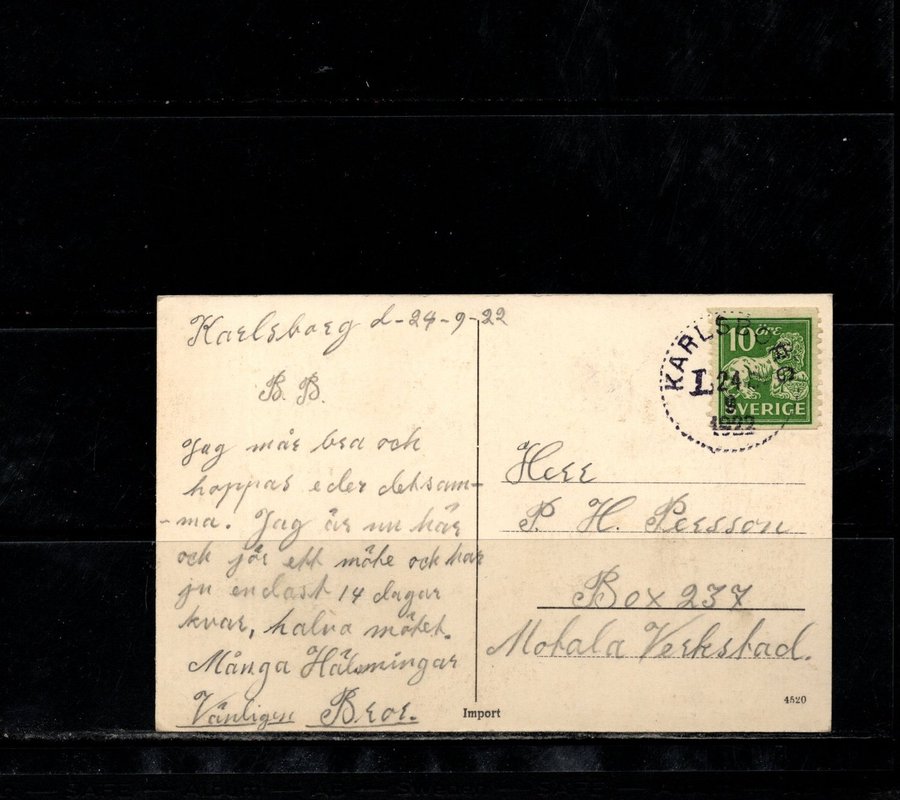 Karlsborg d-24-9-22
B. B.
Jag mår bra och
hoppas eder detsam-
-ma. Jag är nu här
och jör ett möte och har
ju endast 14 dagar
kvar, halva mötet.
Många Hälsningar
Vänligen Bror.
KARLSBORG
10 ÖRE
L 24
9
1922
SVERIGE
Herr
P. H. Persson
Box 237
Motala Verkstad.
Import
4520